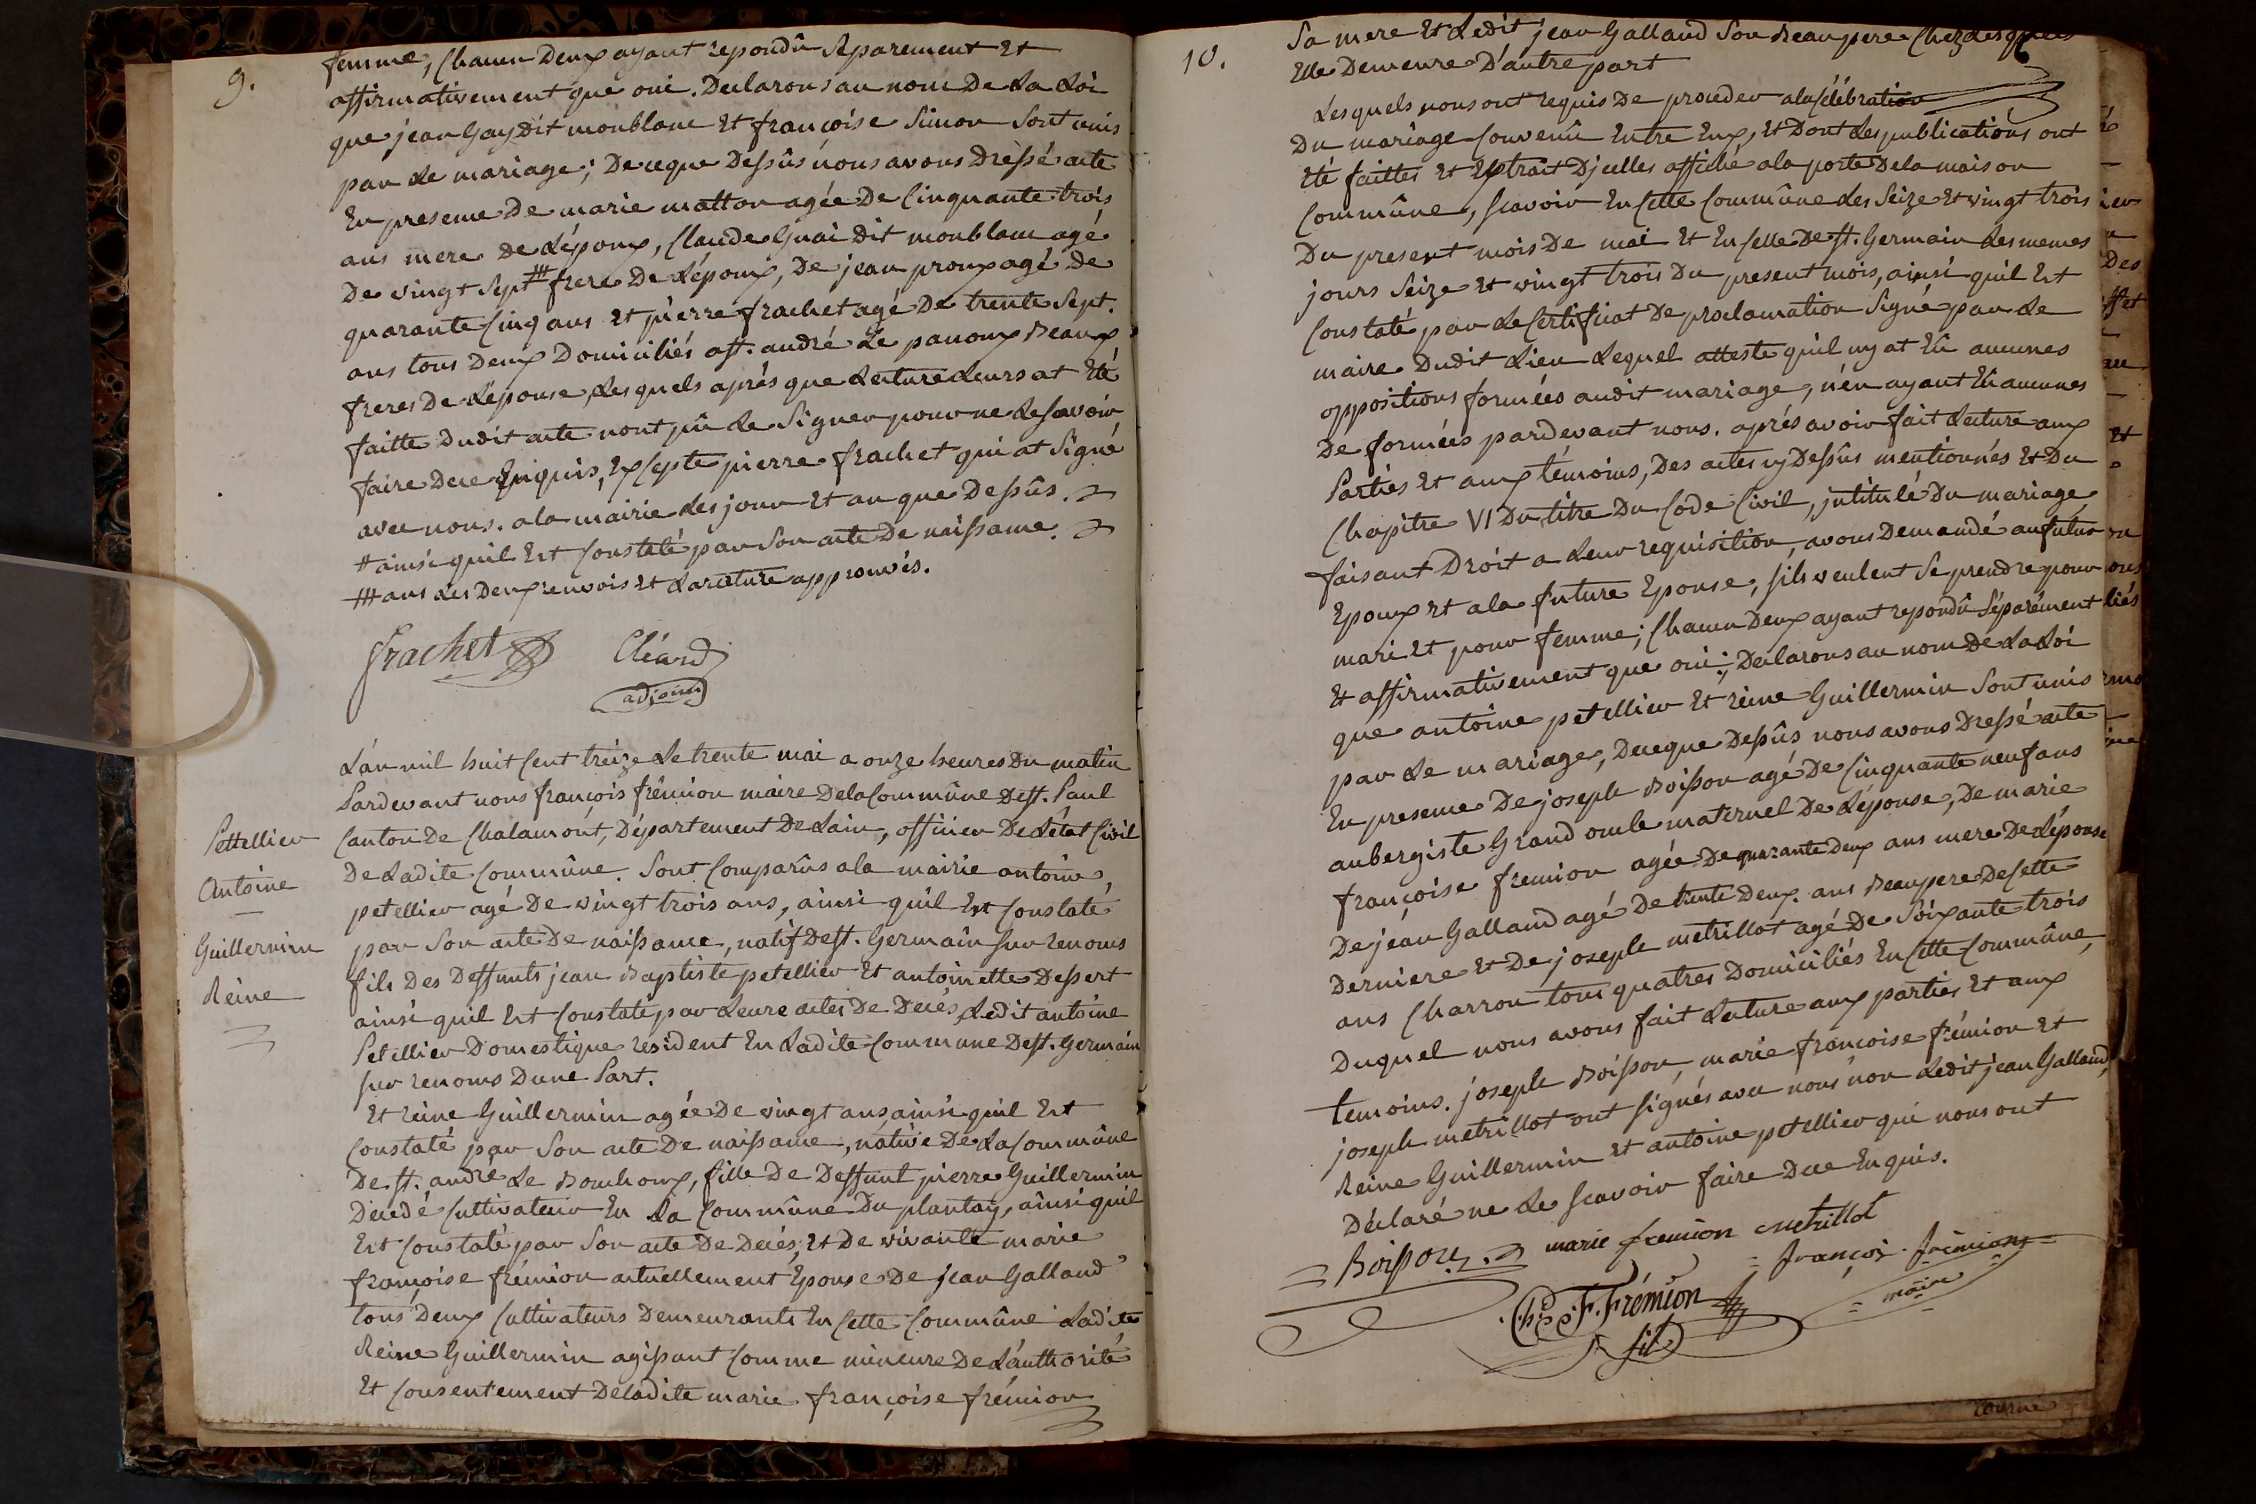 9.
femme, Chacun Deux ayant repondû Séparement Et
affirmativement que oui. Declarons au nom De La Loi
que jean Gay Dit monblanc Et françoise Simon Sont unis
par Le mariage; De ceque Dessûs nous avons Dréssé acte
En presence De marie matton agée De Cinquante trois
ans mere de Lépoux, Claude Guai Dit monblanc agé
De vingt Sept # frere De Lépoux, De jean proux agé De
quarante Cinq ans Et pierre frachet agé De trente Sept.
ans tous Deux Domiciliés a St. andré Le panoux Beaux
freres De Lépouse, Lesquels aprés que Lecture Leurs at Eté
faitte Dudit acte nont pû Le Signer pour ne Le Savoir
faire Dece Enquis, Excepte pierre frachet qui at Signé
avec nous. a la mairie Les jour Et an que Dessûs.
# ainsi quil Est Constaté par Son acte De naissance.
# ans Les Deux renvois Et La rature approuvés.
Frachet Cléard
adjoint
L'an mil huit Cent treize Le trente mai a onze heures Du matin
Pardevant nous françois frémion maire De la Commûne De St. Paul
Canton De Chalamont, Département De Lain, officier De Létat Civil
De Ladite Commûne. Sont Comparûs a la mairie antoine
petellier agé De vingt trois ans, ainsi quil Est Constaté
par Son acte De naissance, natif De St. Germain Sur renoms
fils Des Deffunts jean Baptiste petellier Et antoinette Dessert
ainsi quil Est Constaté par Leurs actes De Decés, Ledit antoine
Petellier Domestique résident En Ladite Commune De St. Germain
Sur renoms Dune Part.
Pettellier
Antoine
Guillermin
Reine
Et reine Guillermin agée De vingt ans, ainsi quil Est
Constaté par Son acte De naissance, native De La Commûne
De St. andré Le Bouchoux, fille De Deffunt pierre Guillermin
Decédé Cultivateur En La Commûne Du plantay, ainsi quil
Est Constaté par Son acte De Decés, Et De vivante marie
françoise frémion actuellement Epouse De jean Galland
tous Deux Cultivateurs Demeurants En Cette Commûne Ladite
Reine Guillermin agissant Comme mineure De Lauthorité
Et Consentement De Ladite marie françoise frémion
10.
Sa mere Et Ledit jean Galland Son Beaupere Chez Lesquels
Elle Demeure D'autre part
Lesquels nous ont requis De proceder a la Célébration
Du mariage Convenû Entre Eux, Et Dont Les publications ont
Eté faittes Et Extrait D'jcelles affiché a la porte De la maison
Commûne, Scavoir En Cette Commûne Les Seize Et vingt trois
Du present mois De mai Et En Celle De St. Germain Les memes
jours Seize Et vingt trois Du present mois, ainsi quil Est
Constaté par Le Certificat De proclamation Signé par Le
maire Dudit Lieu Lequel atteste quil ny at Eû aucunes
oppositions formées audit mariage, n'en ayant Eû aucunes
De formées pardevant nous. aprés avoir fait Lecture aux
Parties Et aux témoins, Des actes cy Dessûs mentionnés Et Du
Chapitre VI Du titre Du Code Civil, jntitulé Du mariage
faisant Droit a Leur requisition, avons Demandé au futur
Epoux Et a la future Epouse, Sils veulent Se prendre pour
mari Et pour femme; Chacun Deux ayant repondû Séparément
Et affirmativement que oui; Declarons au nom De La Loi
que antoine petellier Et reine Guillermin Sont unis
par Le mariage, Deceque Dessûs nous avons Dressé acte
En presence De joseph Boisson agé De Cinquante neuf ans
aubergiste Grand oncle maternel De Lépouse, De marie
françoise fremion agée De quarante Deux ans mere De Lépouse
De jean Galland agé De trente Deux ans Beaupere De Cette
Derniere Et De joseph metrillot agé De Soixante trois
ans Charron tous quatres Domiciliés En Cette Commûne,
Duquel nous avons fait Lecture aux parties Et aux
temoins. joseph Boisson, marie francoise frémion Et
joseph metrillot ont Signés avec nous non Ledit jean Galland,
Reine Guillermin Et antoine petellier qui nous ont
Déclaré ne Le Scavoir faire Dece Enquis.
Boisson marie fremion metrillot
françois frémion
maire
F. Frémion
fils